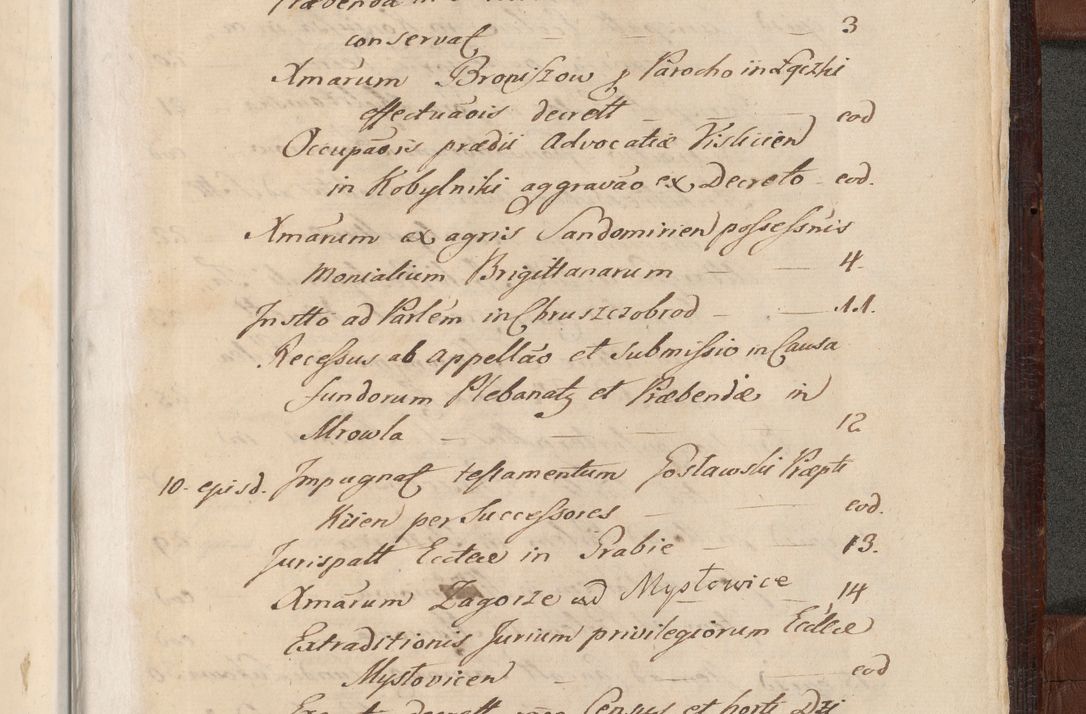 Præbenda in
conservat — — 3
Xmarum Broniszow p Parocho in Łączki
effectuaois decrett — — eod
Occupaois prædii Advocatiæ Vislicien
in Kobylniki aggravao ex Decreto — eod.
Xmarum ex agris Sandomirien possessnis
Monialium Brigittanarum — 4.
Instto ad Parlem in Chruszczobrod — — 11.
Recessus ab Appellao et Submissio in Causa
fundorum Plebanat et Præbendæ in
Mrowla — — — 12
10. episd. Impugnat testamentum Gosławski Præpti
Kiien per Successores — — eod.
Jurispatt Ecclæ in Grabie — — 13.
Xmarum Zagorze ad Mysłowice — 14
Extraditionis Jurium privilegiorum Ecclæ
Mysłovicen — — eod
decrett Census et horti Dzi